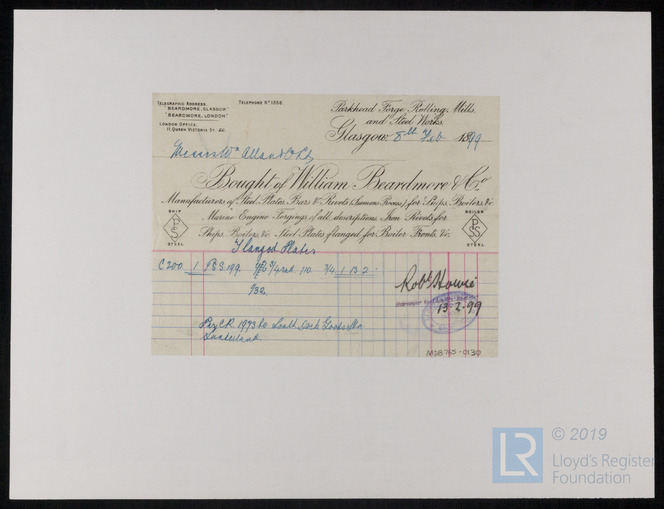 TELEGRAPHIC ADDRESS.
"BEARDMORE, GLASGOW"
"BEARDMORE, LONDON"
LONDON OFFICE,
11, QUEEN VICTORIA ST. E.C.
TELEPHONE No 1358.
Parkhead Forge, Rolling Mills,
and Steel Works,
Glasgow, 8th Feb 1899
Messrs Wm Allan & Co Ld
Bought of William Beardmore & Co.
Manufacturers of Steel Plates, Bars & Rivets (Siemens Process), for Ships, Boilers, &c
Marine Engine Forgings of all descriptions, Iron Rivets for
Ships, Boilers &c. Steel Plates flanged for Boiler Fronts, &c.
SHIP
STEEL
BOILER
STEEL
Flanged Plates
C200 1 110 3/4 1 13 2
1/32
Robt Howie
13.2.99
Per C.R. 1993 to South Dock Goods
Sunderland
M18765-0130
LR
© 2019
Lloyd's Register
Foundation